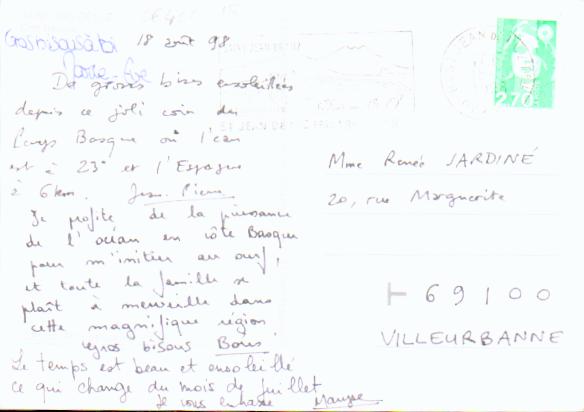 18 août 98
De grosses bises ensoleillées
depuis ce joli coin du
Pays Basque où l'eau
est à 23° et l'Espagne
à 6 km. Jean-Pierre
Je profite de la puissance
de l'océan en côte Basque
pour m'initier au surf,
et toute la famille se
plaît à merveille dans
cette magnifique région
gros bisous Boris
Le temps est beau et ensoleillé
ce qui change du mois de juillet
Je vous embrasse
2,70
Mme Renée JARDINÉ
20, rue Marguerite
69100
VILLEURBANNE